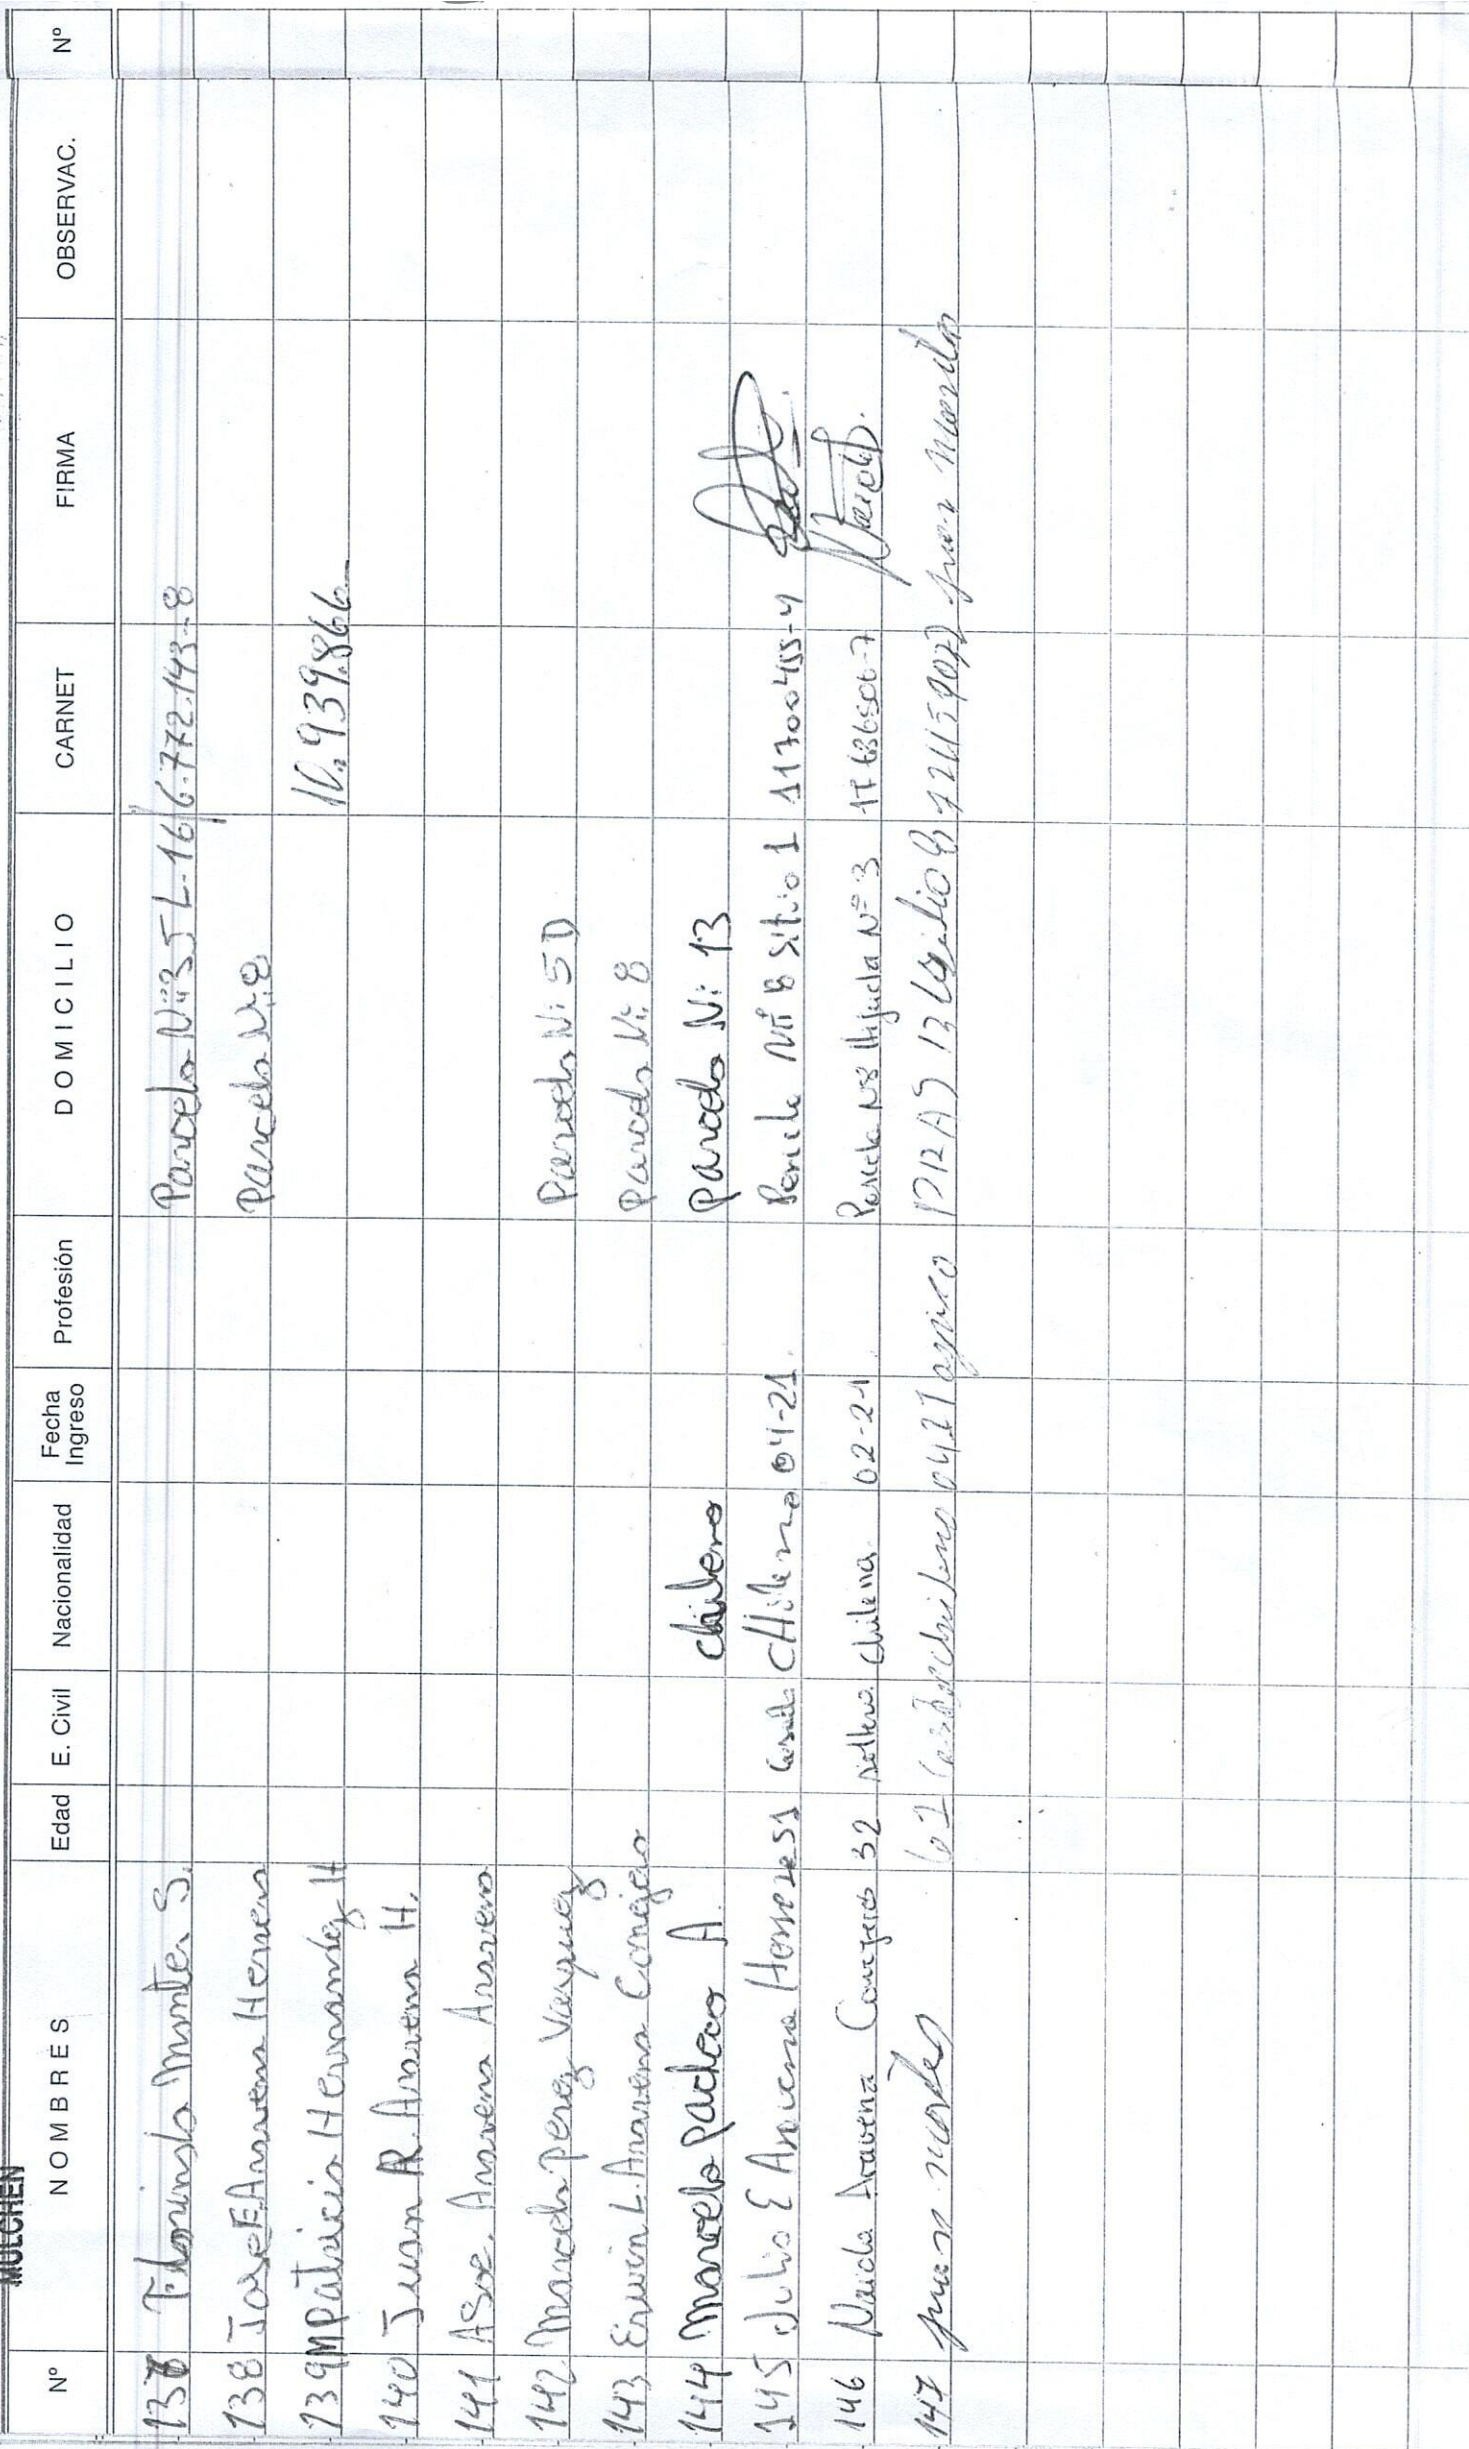 MULCHEN
Nº NOMBRES Edad E. Civil Nacionalidad Fecha Ingreso Profesión DOMICILIO CARNET FIRMA OBSERVAC. Nº
137 Florinda Montes S. Parcela Nº 35 L-16 6.772.143-8
138 Jose E. Aravena Herrera Parcela Nº 8
139 M Patricia Hernandez H 10.939.866
140 Juan R. Aravena H.
141 Aravena Aravena
142 Marcela Perez Vasquez Parcela Nº 5 D
143 Erwin L. Aravena Conejero Parcela Nº 8
144 Marcelo Pacheco A. chileno Parcela Nº 13
145 Julio E Aravena Herrera 51 casado CHileno 04-21 Parcela Nº 8 sitio 1 11700455-4
146 Naida Aravena Conejeros 32 soltera chilena. 02-2-1 Parcela Nº 8 Hijuela Nº 3
147 juan morales 61 chileno 0421 13